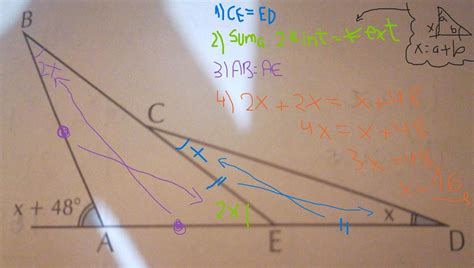 1) CE = ED
2) Suma 2 < int = < ext
3) AB = AE
4) 2x + 2x = x + 48
4x = x + 48
3x = 48
x = 16
a
x b
x = a + b
B
2x
C
x
x + 48°
2x
x
A
E
D